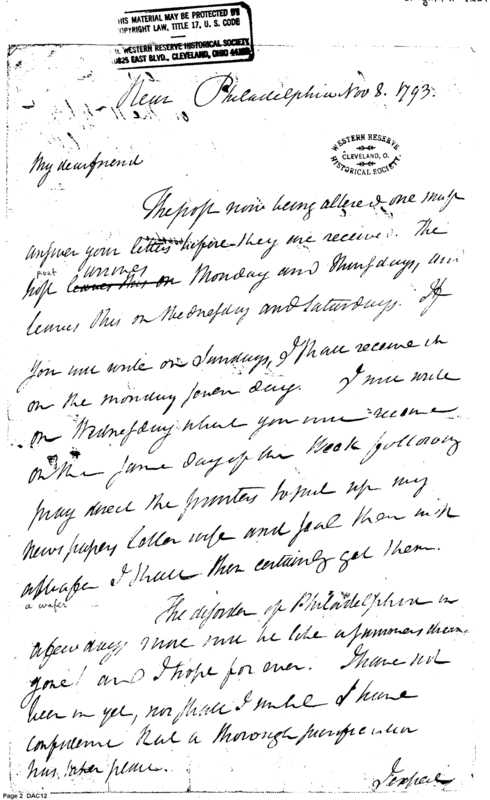 THIS MATERIAL MAY BE PROTECTED BY
COPYRIGHT LAW, TITLE 17, U. S. CODE
WESTERN RESERVE HISTORICAL SOCIETY
10825 EAST BLVD., CLEVELAND, OHIO
Near Philadelphia Nov 8. 1793.
WESTERN RESERVE
CLEVELAND, O.
HISTORICAL SOCIETY
My dear friend
The post now being altered one must
answer your letters before they are received. The
post arrives
post leaves this on Monday and Thursdays, and
leaves this on Wednesday and Saturdays. If
you will write on Sundays, I shall receive it
on the monday seven day. I will write
on Wednesday which you will receive
on the same day of the week following
pray direct the printers to put up my
newspapers letter wise and seal them with
a wafer I shall then certainly get them.
a wafer
The disorder of Philadelphia in
a few days more will be like a summers dream
gone! and I hope for ever. I have not
been in yet, nor shall I until I have
confidence that a thorough purification
has taken place.
I expect
Page 2 DAC12